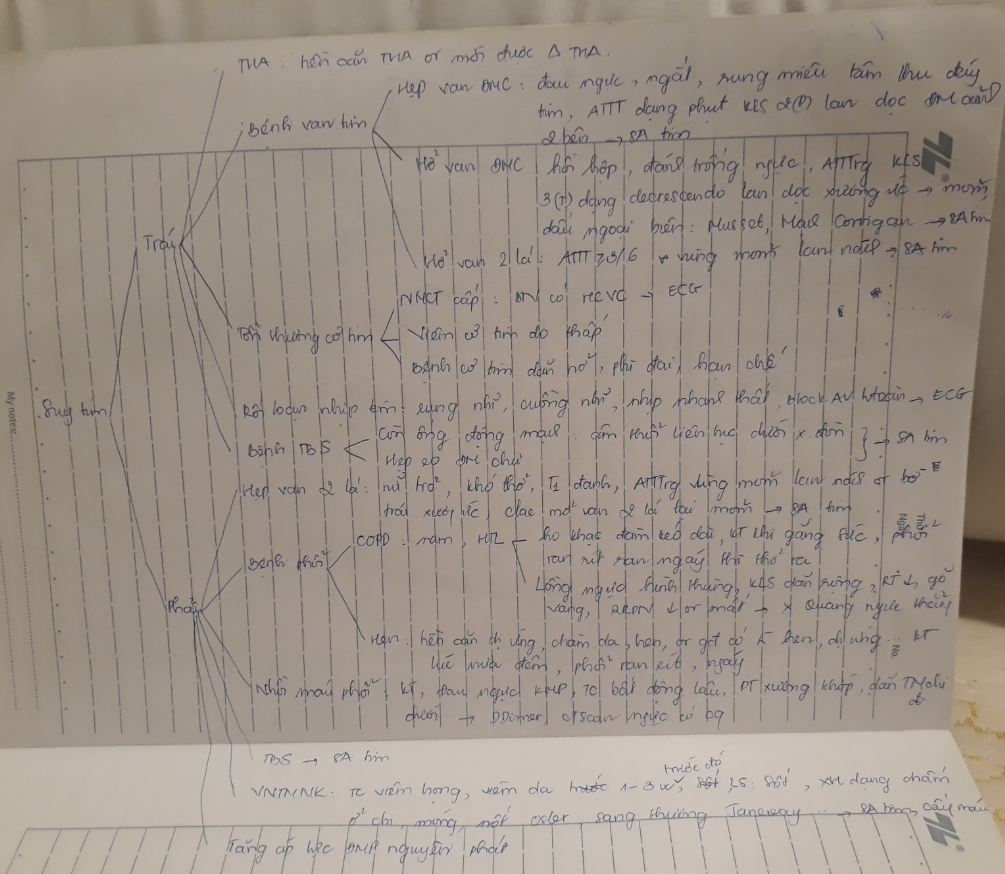 THA : tiền căn THA or mới được Δ THA.
Bệnh van tim
Hẹp van ĐMC : đau ngực, ngất, rung miêu tâm thu đáy
tim, ATTT dạng phụt KLS 2(P) lan dọc ĐM cảnh
2 bên → SA tim
Hở van ĐMC hồi hộp, đánh trống ngực, ATTrg KLS
3(T) dạng decrescendo lan dọc xương ức → mỏm,
dấu ngoại biên: Musset, Mạch Corrigan → SA tim
Trái
Hở van 2 lá: ATTT ≥3/6 vùng mỏm lan nách → SA tim
Tổn thương cơ tim
NMCT cấp : BN có YTNCTM → ECG
Viêm cơ tim do thấp
Bệnh cơ tim dãn nở, phì đại, hạn chế
Suy tim
Rối loạn nhịp tim: rung nhĩ, cuồng nhĩ, nhịp nhanh thất, Block AV → ECG
Bệnh TBS
Còn ống động mạch : âm thổi liên tục dưới x. đòn
Hẹp eo ĐM chủ
→ SA tim
Hẹp van 2 lá : nữ trẻ, khó thở, T1 đanh, ATTrg vùng mỏm lan nách or bờ
trái xương ức, clac mở van 2 lá tại mỏm → SA tim
Phải
Bệnh phổi
COPD : nam, HTL
ho khạc đàm kéo dài, KT khi gắng sức, phổi
ran rít ran ngáy thì thở ra
Lồng ngực hình thùng, KLS dãn rộng, RT ↓, gõ
vang, RRPN ↓ or mất → X Quang ngực thẳng
Hen : tiền căn dị ứng, chàm da, hen, or gđ có hen, dị ứng ... KT
lúc nửa đêm, phổi ran rít, ngáy
Nhồi máu phổi : KT, đau ngực KMP, TC bất động lâu, PT xương khớp, dãn TM chi
dưới → DDimer, CTscan ngực có cq
TBS → SA tim
VNTMNK : TC viêm họng, viêm da 1-3 W trước đó, LS : sốt, XH dạng chấm
ở chi, móng, nốt osler sang thương Janeway ... → SA tim, cấy máu
Tăng áp lực ĐMP nguyên phát
My notes:
Thứ
Ngày
No.